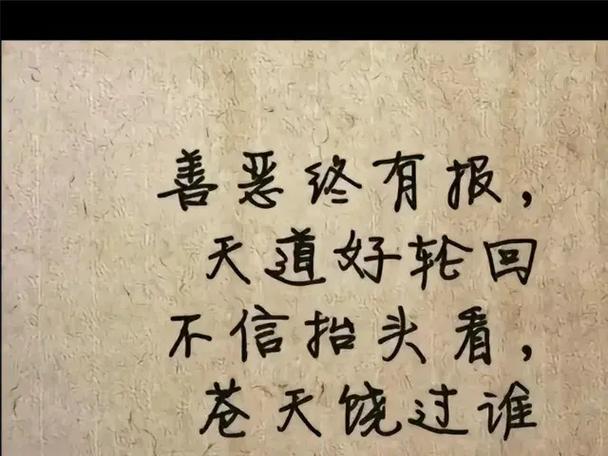 善恶终有报，
天道好轮回
不信抬头看，
苍天饶过谁